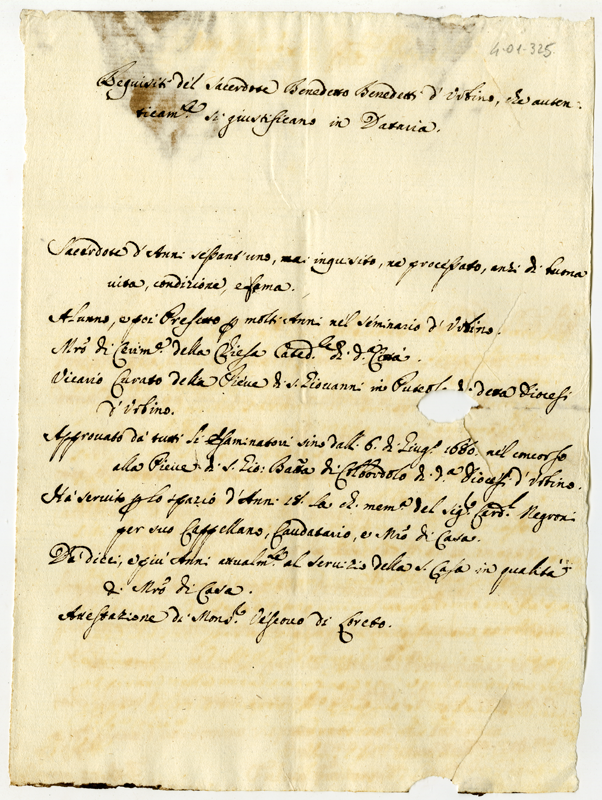 4-01-325
Requisiti del Sacerdote Benedetto Benedetti d'Urbino, che auten:
ticam.te si giustificano in Dataria.
Sacerdote d'Anni sessant'uno, mai inquisito, ne processato, anzi di buona
vita, condizione, e fama.
Alunno, e poi Prefetto p molti Anni nel Seminario d'Urbino.
Mro di Cerim.e della Chiesa Cated.le di d.a Città.
Vicario Curato della Pieve di S. Giovanni in di detta Diocesi
d'Urbino.
Approvato da tutti li Essaminatori sino dall: 6. di Giug.o 1680. nel concorso
alla Pieve di S. Gio: Batta di Colbordolo di d.a Dioces. d'Urbino.
Ha servito p lo spazio d'Anni 18. la ch. mem.a del Sig.r Card.l Negroni
per suo Cappellano, Caudatario, e Mro di Casa.
Da dieci, e più Anni attualm.te al servizio della S. Casa in qualità
di Mro di Casa.
Attestazione di Mons.r Vescovo di Loreto.